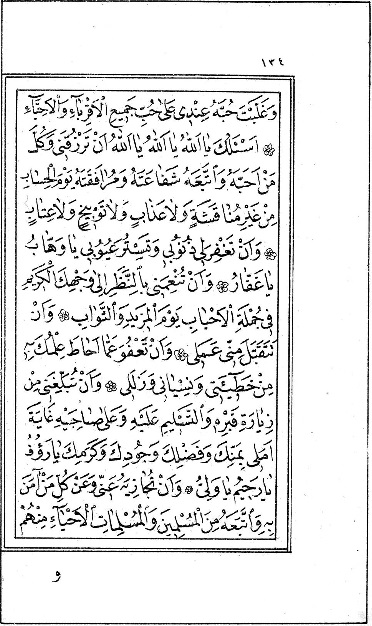 ١٣٤
وَغَلَبَتْ حُبُّهُ عِنْدِي عَلَى حُبِّ جَمِيعِ الْأَقْرِبَاءِ وَالْأَحِبَّاءِ
۞ اَسْئَلُكَ يَا اَللهُ يَا اَللهُ يَا اَللهُ اَنْ تَرْزُقَنِي وَكُلَّ
مَنْ اَحَبَّهُ وَاتَّبَعَهُ شَفَاعَتَهُ وَمُرَافَقَتَهُ يَوْمَ الْحِسَابِ
مِنْ غَيْرِ مُنَاقَشَةٍ وَلَا عَذَابٍ وَلَا تَوْبِيخٍ وَلَا عِتَابٍ
۞ وَاَنْ تَغْفِرَ لِي ذُنُوبِي وَتَسْتُرَ عُيُوبِي يَا وَهَّابُ
يَا غَفَّارُ ۞ وَاَنْ تُنْعِمَنِي بِالنَّظَرِ اِلَى وَجْهِكَ الْكَرِيمِ
فِي جُمْلَةِ الْاَحْبَابِ يَوْمَ الْمَزِيدِ وَالثَّوَابِ ۞ وَاَنْ
تَتَقَبَّلَ مِنِّي عَمَلِي ۞ وَاَنْ تَعْفُوَ عَمَّا اَحَاطَ عِلْمُكَ بِهِ
مِنْ خَطِيئَتِي وَنِسْيَانِي وَزَلَلِي ۞ وَاَنْ تُبَلِّغَنِي مِنْ
زِيَارَةِ قَبْرِهِ وَالتَّسْلِيمِ عَلَيْهِ وَعَلَى صَاحِبَيْهِ غَايَةَ
اَمَلِي بِمَنِّكَ وَفَضْلِكَ وَجُودِكَ وَكَرَمِكَ يَا رَؤُفُ
يَا رَحِيمُ يَا وَلِيُّ ۞ وَاَنْ تُجَازِيَهُ عَنِّي وَعَنْ كُلِّ مَنْ اٰمَنَ
بِهِ وَاتَّبَعَهُ مِنَ الْمُسْلِمِينَ وَالْمُسْلِمَاتِ الْاَحْيَاءِ مِنْهُمْ
و